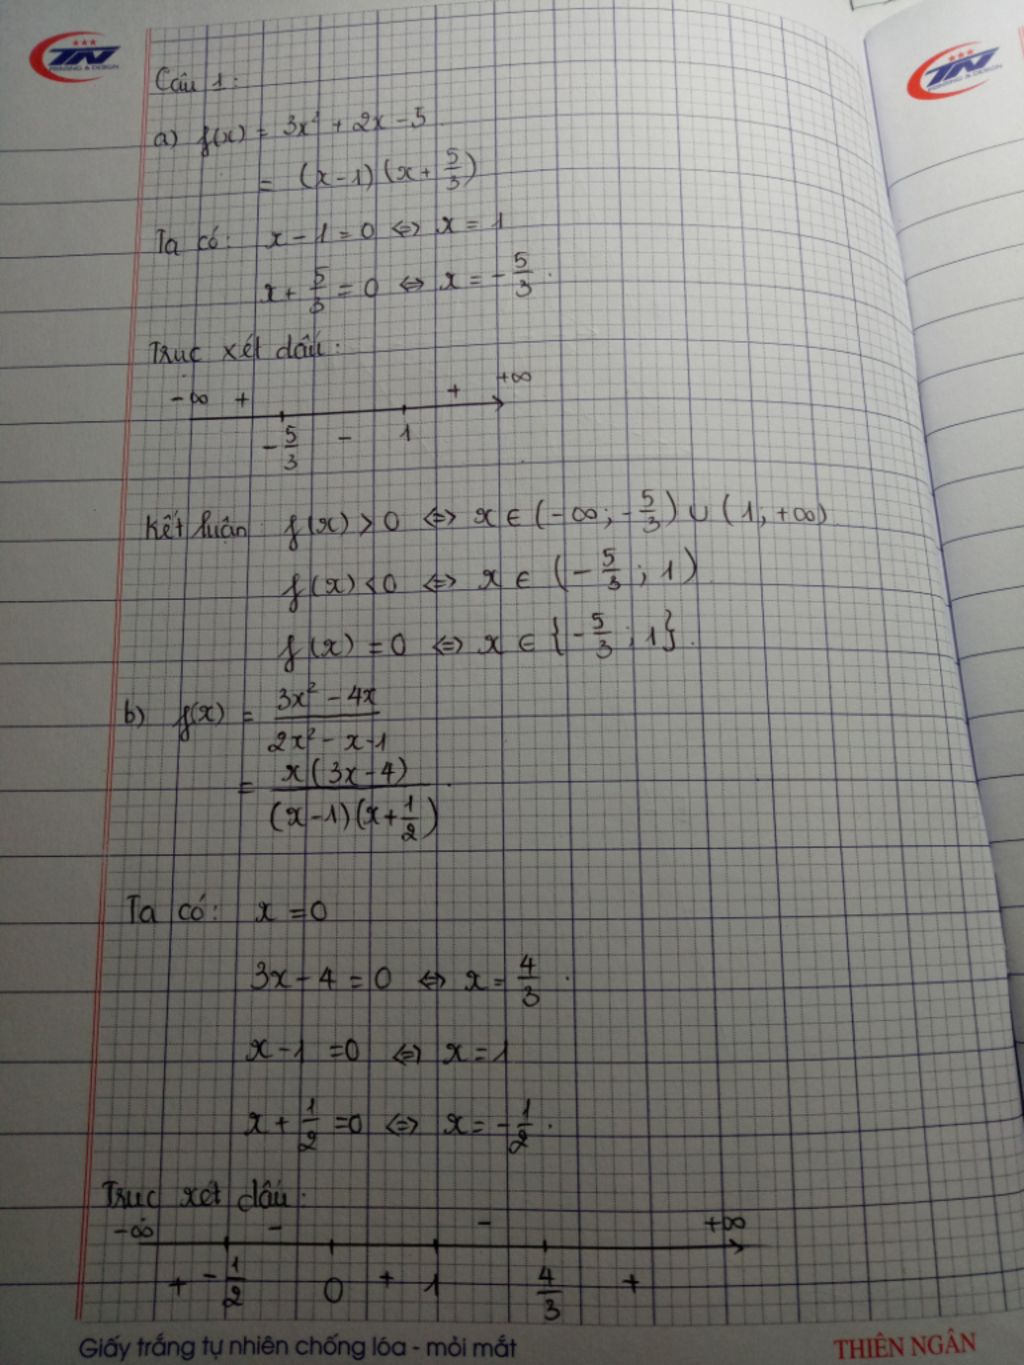 TN
PRINTING & DESIGN
TN
PRINTING & DESIGN
Câu 1:
a) f(x) = 3x² + 2x - 5
= (x-1)(x+ 5/3)
Ta có: x - 1 = 0 ⇔ x = 1
x + 5/3 = 0 ⇔ x = - 5/3.
Trục xét dấu:
-∞ + + +∞
- 5/3 - 1
Kết luận: f(x) > 0 ⇔ x ∈ (-∞; - 5/3) ∪ (1; +∞)
f(x) < 0 ⇔ x ∈ (- 5/3; 1)
f(x) = 0 ⇔ x ∈ {- 5/3; 1}.
b) f(x) = (3x² - 4x)/(2x² - x - 1)
= x(3x-4)/((x-1)(x+ 1/2))
Ta có: x = 0
3x - 4 = 0 ⇔ x = 4/3.
x - 1 = 0 ⇔ x = 1
x + 1/2 = 0 ⇔ x = - 1/2.
Trục xét dấu:
-∞ - - +∞
+ - 1/2 0 + 1 4/3 +
Giấy trắng tự nhiên chống lóa - mỏi mắt
THIÊN NGÂN